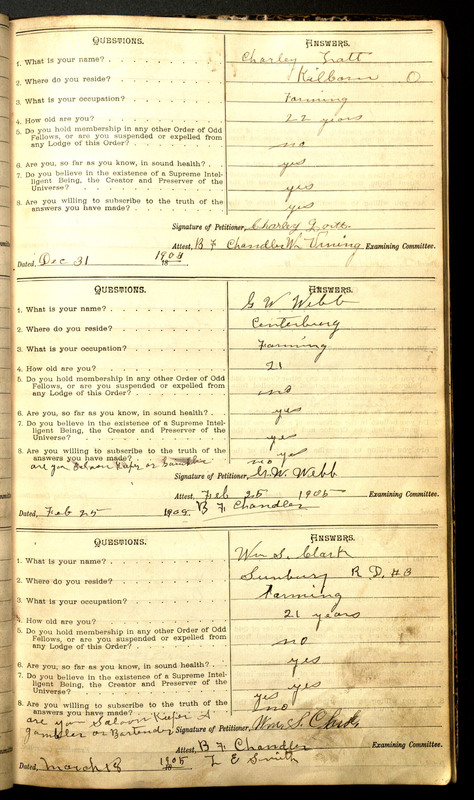 QUESTIONS. ANSWERS.
1. What is your name? Charley
2. Where do you reside? Kilbourn O
3. What is your occupation? Farming
4. How old are you? 22 years
5. Do you hold membership in any other Order of Odd
Fellows, or are you suspended or expelled from
any Lodge of this Order? no
6. Are you, so far as you know, in sound health? yes
7. Do you believe in the existence of a Supreme Intel-
ligent Being, the Creator and Preserver of the
Universe? yes
8. Are you willing to subscribe to the truth of the
answers you have made? yes
Signature of Petitioner, Charley
Attest, B F Chandler Wm Vining Examining Committee.
Dated, Dec 31 1904
QUESTIONS. ANSWERS.
1. What is your name? G W Webb
2. Where do you reside? Centerburg
3. What is your occupation? Farming
4. How old are you? 21
5. Do you hold membership in any other Order of Odd
Fellows, or are you suspended or expelled from
any Lodge of this Order? no
6. Are you, so far as you know, in sound health? yes
7. Do you believe in the existence of a Supreme Intel-
ligent Being, the Creator and Preserver of the
Universe? yes
8. Are you willing to subscribe to the truth of the
answers you have made? yes
are you Saloon Keeper or Gambler no
Signature of Petitioner, G. W. Webb
Attest, Feb 25 1905 Examining Committee.
Dated, Feb 25 1905 B F Chandler
QUESTIONS. ANSWERS.
1. What is your name? Wm S. Clark
2. Where do you reside? Sunbury R D. #3
3. What is your occupation? Farming
4. How old are you? 21 years
5. Do you hold membership in any other Order of Odd
Fellows, or are you suspended or expelled from
any Lodge of this Order? no
6. Are you, so far as you know, in sound health? yes
7. Do you believe in the existence of a Supreme Intel-
ligent Being, the Creator and Preserver of the
Universe? yes
8. Are you willing to subscribe to the truth of the
answers you have made? yes
are you Saloon Keeper A no
gambler or Bartender Signature of Petitioner, Wm. S. Clark
Attest, B F Chandler Examining Committee.
Dated, March 18 1905 L E Smith